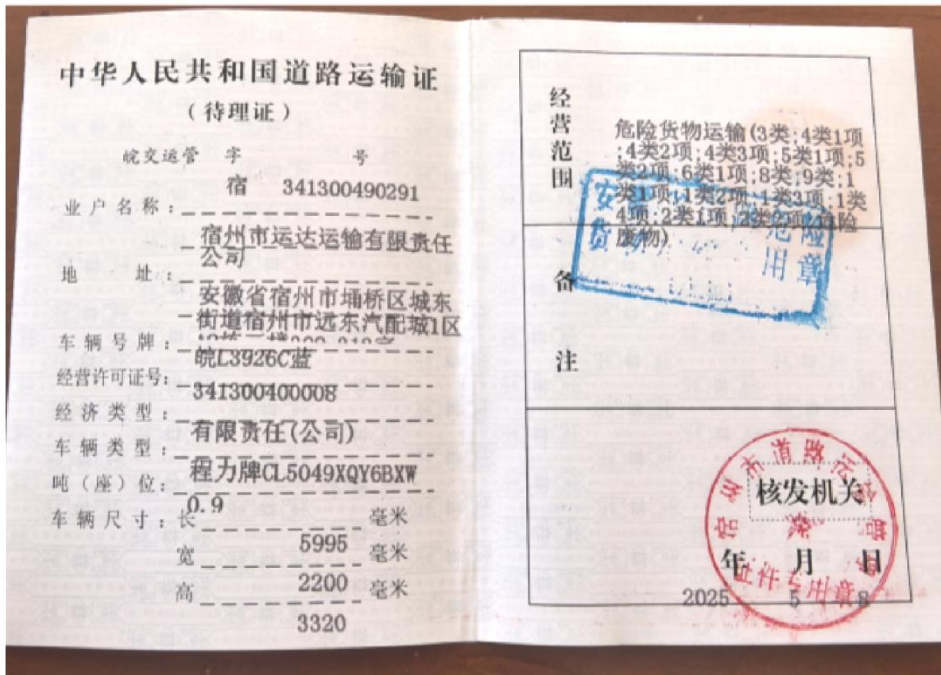 中华人民共和国道路运输证
（待理证）
皖交运管 字 号
宿 341300490291
业户名称：
宿州市运达运输有限责任
公司
地 址：
安徽省宿州市埇桥区城东
街道宿州市远东汽配城1区
车辆号牌：
皖L3926C蓝
经营许可证号：
341300400008
经济类型：
有限责任(公司)
车辆类型：
程力牌CL5049XQY6BXW
吨（座）位：
0.9
车辆尺寸：长 毫米
5995
宽 毫米
2200
高 毫米
3320
经营范围
危险货物运输(3类;4类1项
;4类2项;4类3项;5类1项;5
类2项;6类1项;8类;9类;1
类1项;1类2项;1类3项;1类
4项;2类1项;
废物)
备注
核发机关
年 月 日
2025 5 8
证件专用章